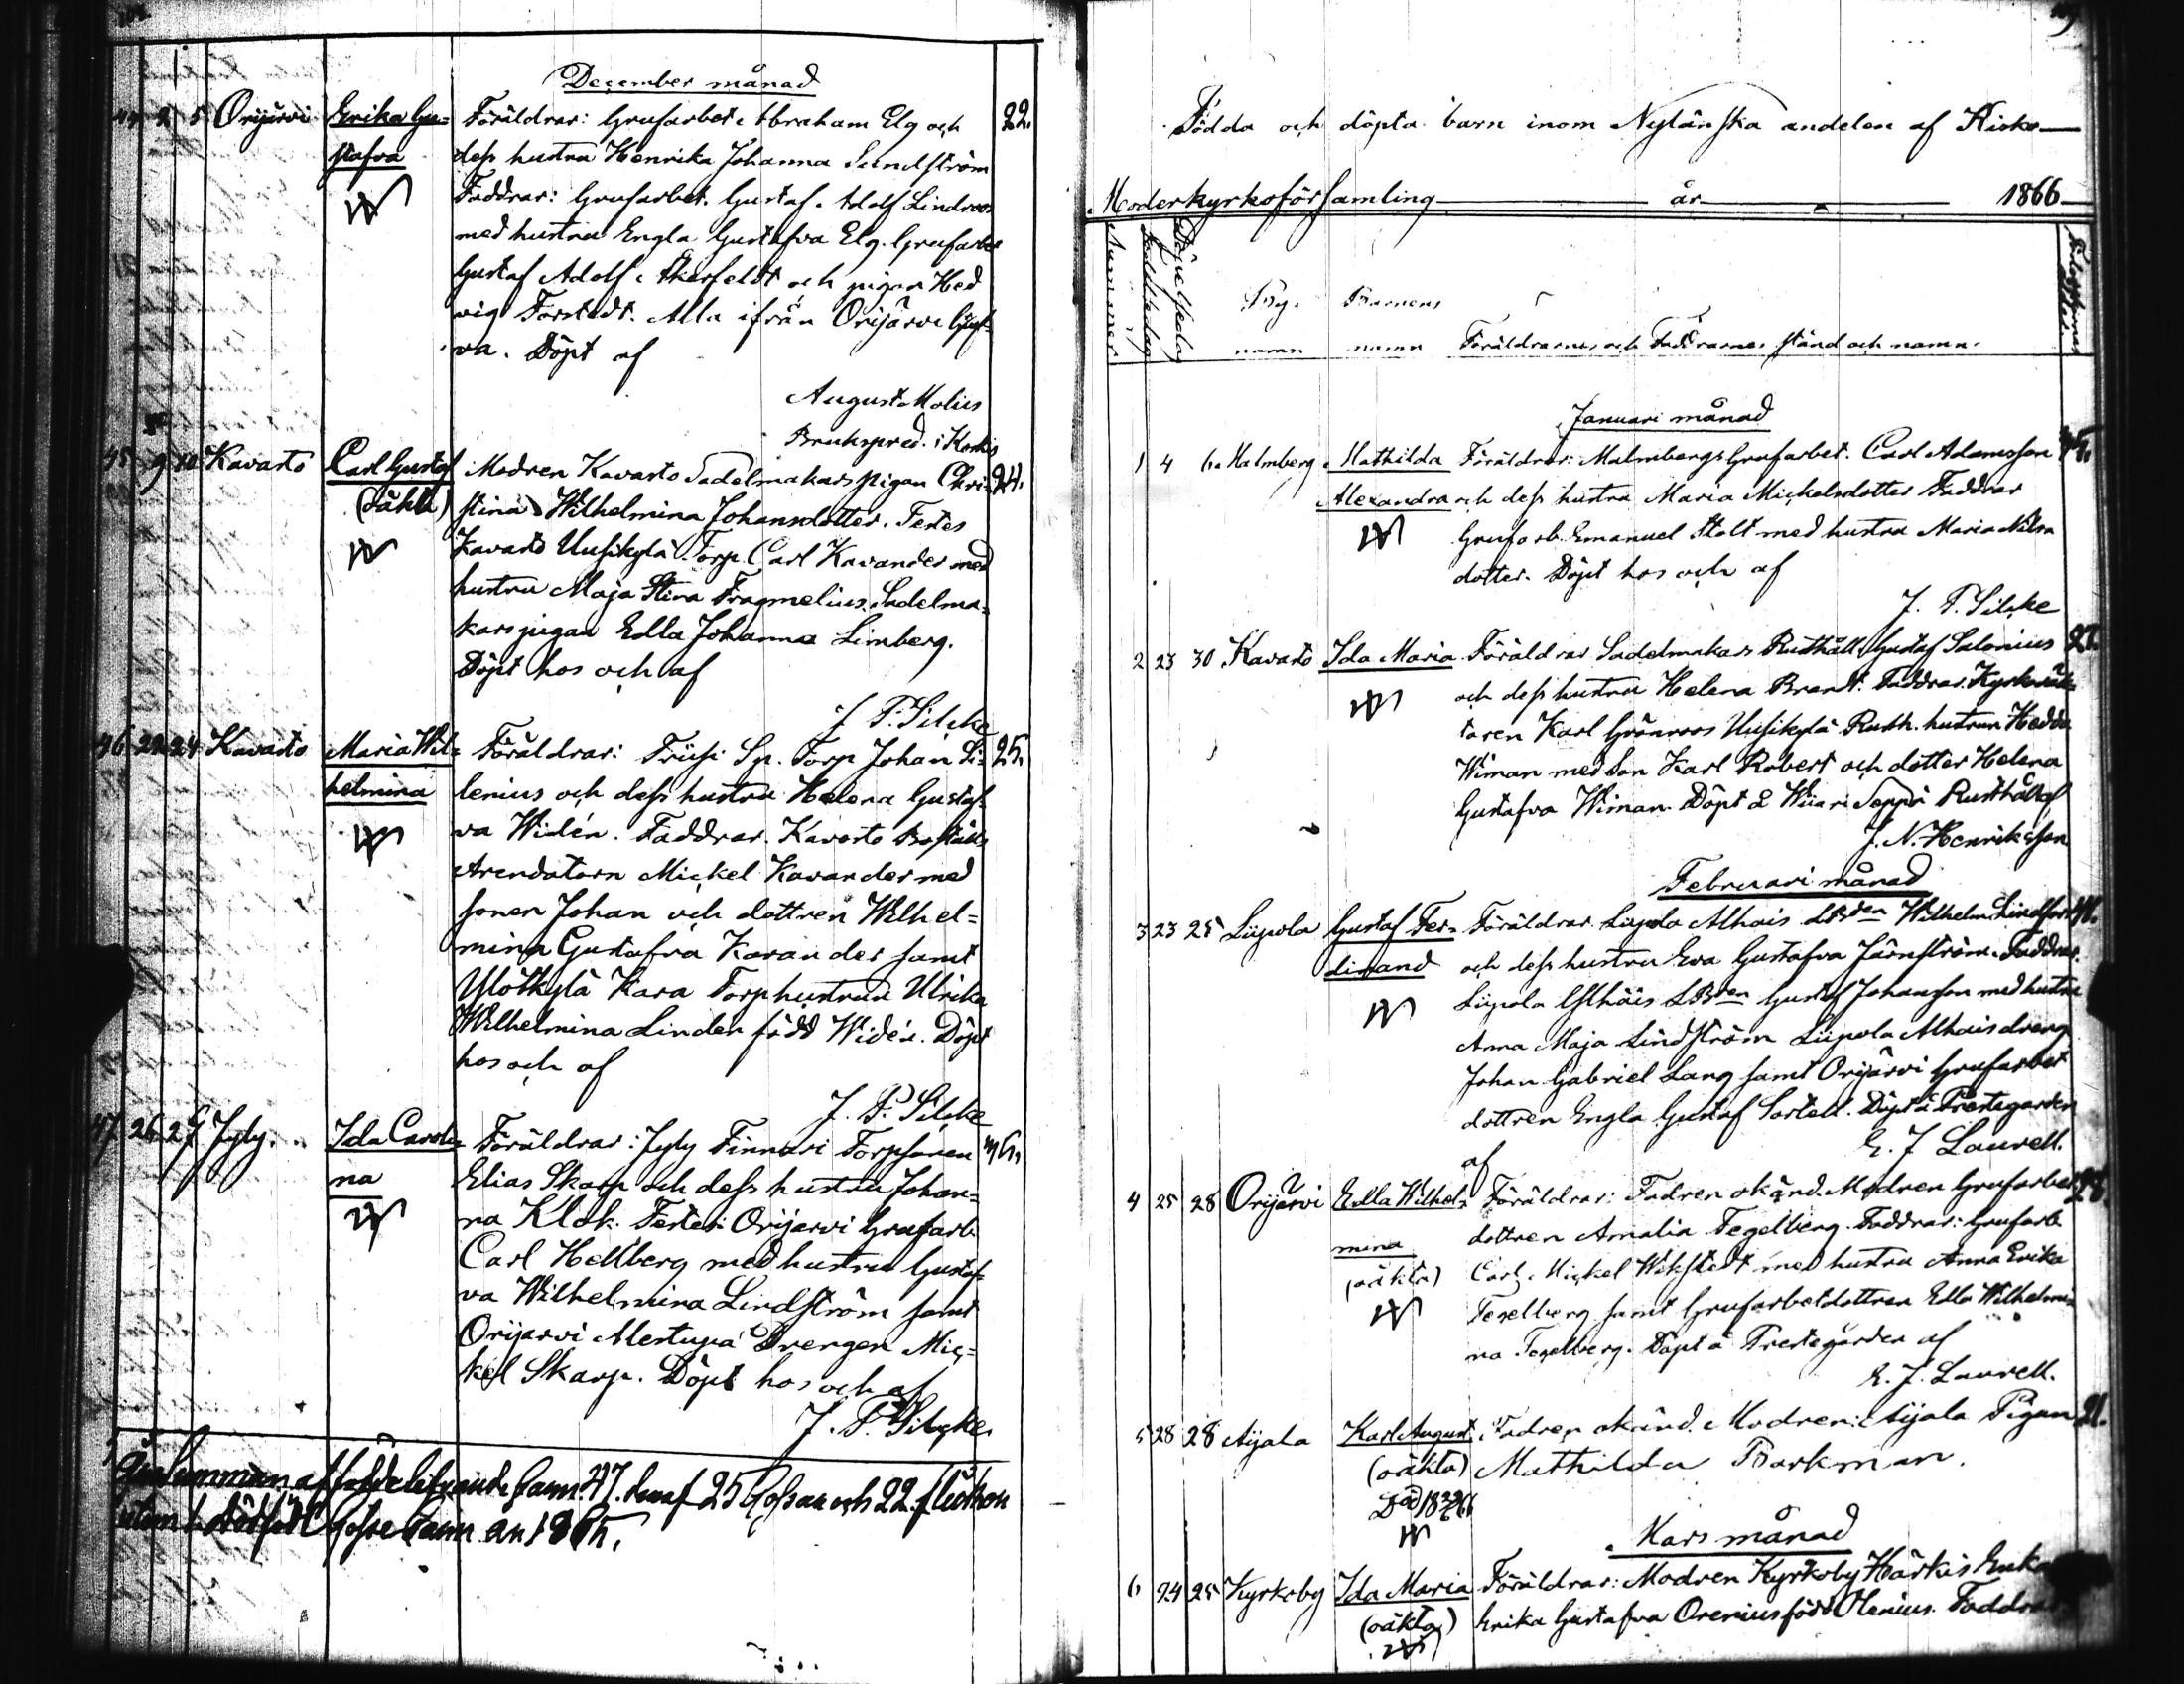 December månad
44 2 5 Orijärvi Erika Gu= Föräldrar: Grufarbet. Abraham Elg och 22.
stafva dess hustru Henrika Johanna Sundström
Faddrar: Grufarbet. Gustaf Adolf Lindroos
med hustru Engla Gustafva Elg. Grufarbet
Gustaf Adolf Åkerfeldt och pigan Hed
vig Forstedt. Alla ifrån Orijärvi Gruf=
va. Döpt af
August Molius
Brukspred. i Koski
45 9 10 Kavasto Carl Gustaf Modren Kavasto Sadelmakars pigan Chri= 24.
(oäkta) stina Wilhelmina Johansdotter. Testes
Kavasto Uusikylä Torp. Carl Kavander med
hustru Maja Stina Fragmelius. Sadelma=
kars pigan Edla Johanna Limberg.
Döpt hos och af
J. P. Silcke
46 22 24 Kavasto Maria Wil= Föräldrar: Sp. Torp Johan Si= 25.
helmina lenius och dess hustru Helena Gustaf=
va Widén. Faddrar. Kavasto Boställs
Arendatorn Mickel Kavander med
sonen Johan och dottren Wilhel=
mina Gustafva Kavander samt
Ylötkylä Kara Torphustrun Ulrika
Wilhelmina Linder född Widén. Döpt
hos och af
J. P. Silcke
47 26 27 Jyly. Ida Caroli= Föräldrar: Jyly Finnari Torpsonen
na Elias Skarp och dess hustru Johan=
na Klok. Testes: Orijärvi Grufarb.
Carl Hellberg med hustru Gustaf=
va Wilhelmina Lindström samt
Orijärvi Mestupa Drengen Mic=
kel Skarp. Döpt hos och af
J. P. Silcke
Summan af födde lefvande barn 47. deraf 25 Gossar och 22 flickor
utom 1 dödfödt Gosse barn. år 1865.
Födda och döpta barn inom Nyländska andelen af Kisko
Moderkyrkoförsamling år 1866
Nummer Födelsedag Döpelsedag By. Barnens
namn namn Föräldrarnes och Faddrarnes stånd och namn.
Januari månad
1 4 6 Malmberg Mathilda Föräldrar: Malmbergs Grufarbet. Carl Adamsson
Alexandra och dess hustru Maria Mickelsdotter Faddrar
Grufarb. Emanuel Stolt med hustru Maria Nils
dotter. Döpt hos och af
J. P. Silcke
2 23 30 Kavasto Ida Maria Föräldrar Sadelmakars Rusthåll. Gustaf Salonius 27.
och dess hustru Helena Brandt. Faddrar.
Karl Grönroos Uusikylä Rusth. hustrun Hedda
Wiman med son Karl Robert och dotter Helena
Gustafva Wiman. Döpt å Wiiari Seppä Rusthåll af
J. N. Henriksson
Februari månad
3 23 25 Liipola Gustaf Fer= Föräldrar Liipola Alhais Wilhelm Lindfors
dinand och dess hustru Eva Gustafva Järnström. Faddrar.
Liipola Alhais Gustaf Johansson med hustru
Anna Maja Lindström Liipola Alhais dreng
Johan Gabriel Lang samt Orijärvi Grufarbet
dottren Engla Gustaf Sortell. Döpt å Prestegården
af E. J. Laurell.
4 25 28 Orijärvi Edla Wilhel= Föräldrar: Fadren okänd. Modren Grufarbet 28.
mina dottren Amalia Tegelberg. Faddrar: Grufarb.
(oäkta) Carl Mickel Wikstedt med hustru Anna Erika
Tegelberg samt Grufarbetdottren Edla Wilhelmi
na Tegelberg. Döpt å Prestegården af
E. J. Laurell.
5 28 28 Aijala Karl August Fadren okänd. Modren: Aijala Pigan 21.
(oäkta) Mathilda Barkman.
Mars månad
6 24 25 Kyrkoby Ida Maria Föräldrar: Modren Kyrkoby Härkis Enka
(oäkta) Erika Gustafva Orenius född Olenius. Faddrar